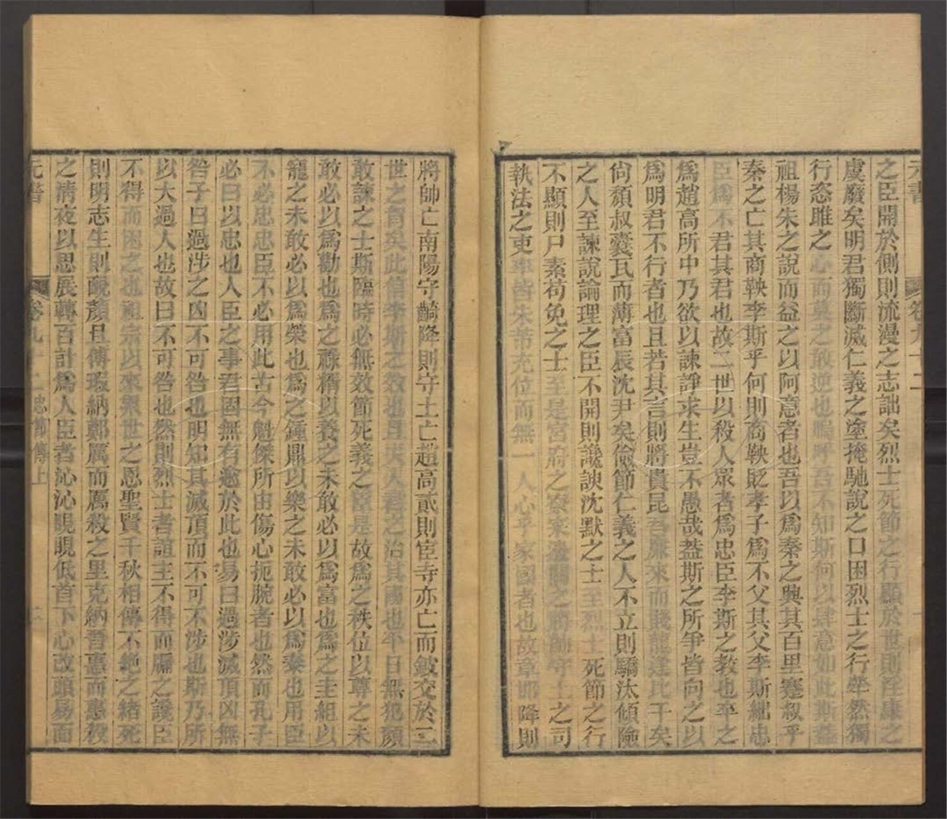 之臣開於側則流漫之志詘矣烈士死節之行顯於世則淫康之
虞廢矣明君獨斷滅仁義之塗掩馳說之口困烈士之行犖然獨
行恣睢之心而莫之敢逆也嗚呼吾不知斯何以肆意如此斯蓋
祖楊朱之說而益之以阿意者也吾以爲秦之興其百里蹇叔乎
秦之亡其商鞅李斯乎何則商鞅貶孝子爲不父其父李斯絀忠
臣爲不君其君也故二世以殺人眾者爲忠臣李斯之教也卒之
爲趙高所中乃欲以諫諍求生豈不愚哉蓋斯之所爭皆向之以
爲明君不行者也且若其言則將貴昆吾廉來而賤龍逢比干矣
尙頹叔囊瓦而薄富辰沈尹矣儉節仁義之人不立則驕汰傾險
之人至諫說論理之臣不開則讒諛沈默之士圭烈士死節之行
不顯則尸素苟免之士至是宮府之寮寀疆關之將帥守土之司
執法之吏率皆朱芾充位而無一人心乎家國者也故章邯降則
將帥亡南陽守齮降則守土亡趙高貳則宦寺亦亡而斂交於二
世之首矣此信李斯之效也且夫善者之治其國也平日無犯顏
敢諫之士斯臨時必無效節死義之臣是故爲之秩位以尊之未
敢必以爲勸也爲之祿糈以養之未敢必以爲富也爲之圭組以
寵之未敢必以爲榮也爲之鍾鼎以樂之未敢必以爲泰也用臣
不必忠忠臣不必用此古今魁傑所由傷心扼腕者也然而孔子
必曰以忠也人臣之事君固無有逾於此也易曰過涉滅頂凶無
咎子曰過涉之凶不可咎也明知其滅頂而不可不涉也斯乃所
以大過人也故曰不可咎也然則烈士者誼主不得而屬之讒臣
不得而困之也祖宗以來累世之恩聖賢千秋相傳不絶之緒死
則明志生則靦顏且傅瑕納鄭厲而厲殺之里克納晉惠而惠殺
之淸夜以思展轉百計爲人臣者沁沁睍睍低首下心改頭易面
元書
卷九十二
忠節傳上